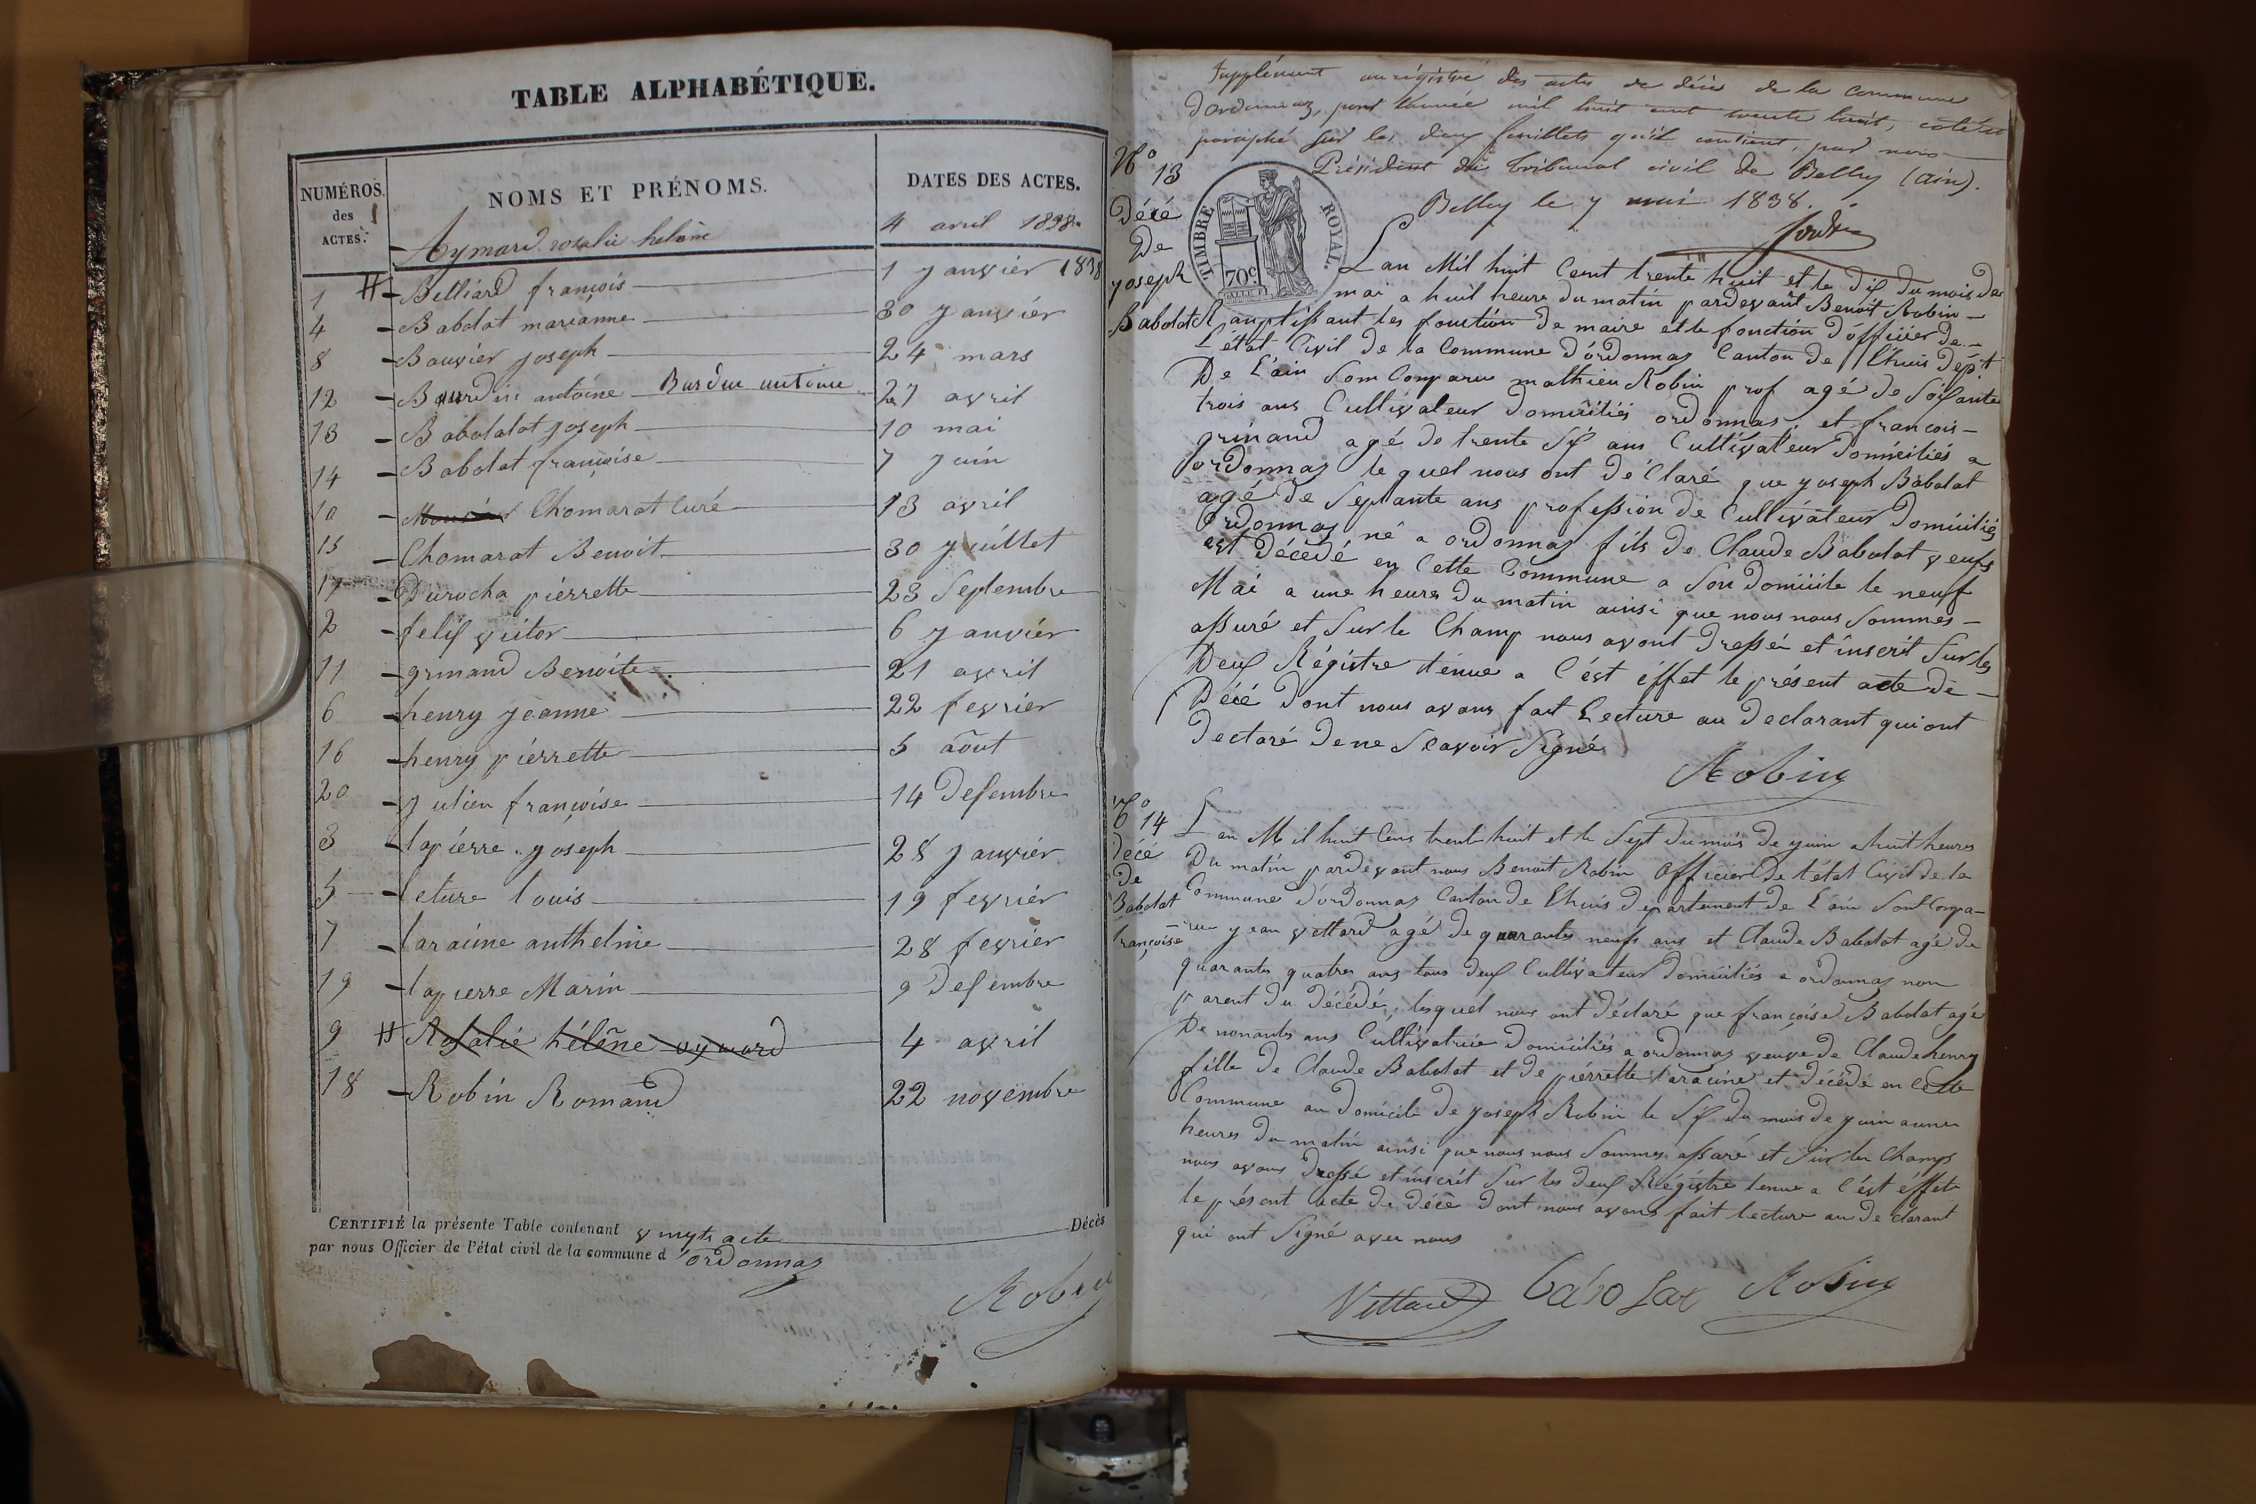 TABLE ALPHABÉTIQUE.
NUMÉROS des ACTES. NOMS ET PRÉNOMS. DATES DES ACTES.
Aymard rosalie helène 4 avril 1838
1 Belliard françois 1 yanvier 1838
4 Babolat marianne 30 yanvier
8 Bouvier yoseph 24 mars
12 Bourdin antoine Burdin antoine 27 avril
13 Babolalat yoseph 10 mai
14 Babolat françoise 7 yuin
10 Chomarat Curé 13 avril
15 Chomarat Benoit 30 yuillet
17 Durocha piérrette 23 Septembre
2 felix victor 6 yanvier
11 grinand Benoite 21 avril
6 henry yeanne 22 fevriér
16 henry piérrette 5 août
20 yulien françoise 14 Desembre
3 lapiérre yoseph 28 yanviér
5 leture louis 19 fevriér
7 laracine anthelme 28 fevriér
19 lapierre Marin 9 Desembre
9 Rosalie hélène aymard 4 avril
18 Robin Romand 22 novembre
CERTIFIÉ la présente Table contenant vingts acte Décès
par nous Officier de l'état civil de la commune d'ordonnaz
Robin
Supplément au régistre des actes de décès de la Commune
d'ordonnaz, pour l'année mil huit cent trente huit, coté et
paraphé sur les deux feuillets qu'il contient, par nous
Président du tribunal civil de Belley (Ain).
Belley le 7 mai 1838.
TIMBRE ROYAL.
70c
No 13
Décé
De
yoseph
Babolat
Lan Mil huit Cent trente huit et le dix du mois de
mai a huit heure du matin pardevant Benoit Robin
Ramplissant les fonction de maire et le fonction d'officier de
L'état Civil de la Commune d'ordonnaz Canton de lhuis dépt
De L'ain Som Comparu mathieu Robin prof agé de Soixante
trois ans Cultivateur domiciliés ordonnas, et francois
grinand agé de trente Six ans Cultivateur domiciliés a
ordonnaz le quel nous ont déClaré que yoseph Babolat
agé de Septante ans profession de Cultivateur Domiciliés
Ordonnaz né a ordonnaz fils de Claude Babolat veufs
est Décédé en Cette Commune a Son domicile le neuf
Mai a une heures du matin ainsi que nous nous Sommes
assuré et Sur le Champ nous avont Dressér et inscrit Sur les
Deux Régistre ténue a C'ést éffet le présent acte de
Décé Dont nous avons fait Lecture au Declarant qui ont
Declaré De ne Scavoir Signé
Robin
No 14
Décé
De
Babolat
françoise
Lan Mil huit Cens trente huit et le Sept du mois de yuin a huit heures
Du matin pardevant nous Benoit Robin Officier De l'état Civil de la
Commune d'ordonnaz Canton de lhuis département de L'ain Sont Compa-
rue yean vittard agé de quarantes neufs ans et Claude Babolat agé de
quarantes quatres ans tous deux Cultivateur domiciliés a ordonnaz non
parent du Décédé, lesquel nous ont déclaré que françoise Babolat agé
De nonantes ans Cultivatrice Domiciliés a ordonnaz veuve de Claude henry
fille de Claude Babolat et de piérrette laracine et décédé en Cette
Commune au domicile de yoseph Robin le Six du mois de yuin a une
heures du matin ainsi que nous nous Sommes assuré et Sur les Champs
nous avons dressé et inscrit Sur les deux Régistre tenue a C'ést éffet
le présent acte de décé dont nous avons fait lecture au declarant
qui ont Signé avec nous
Vittard babolat Robin